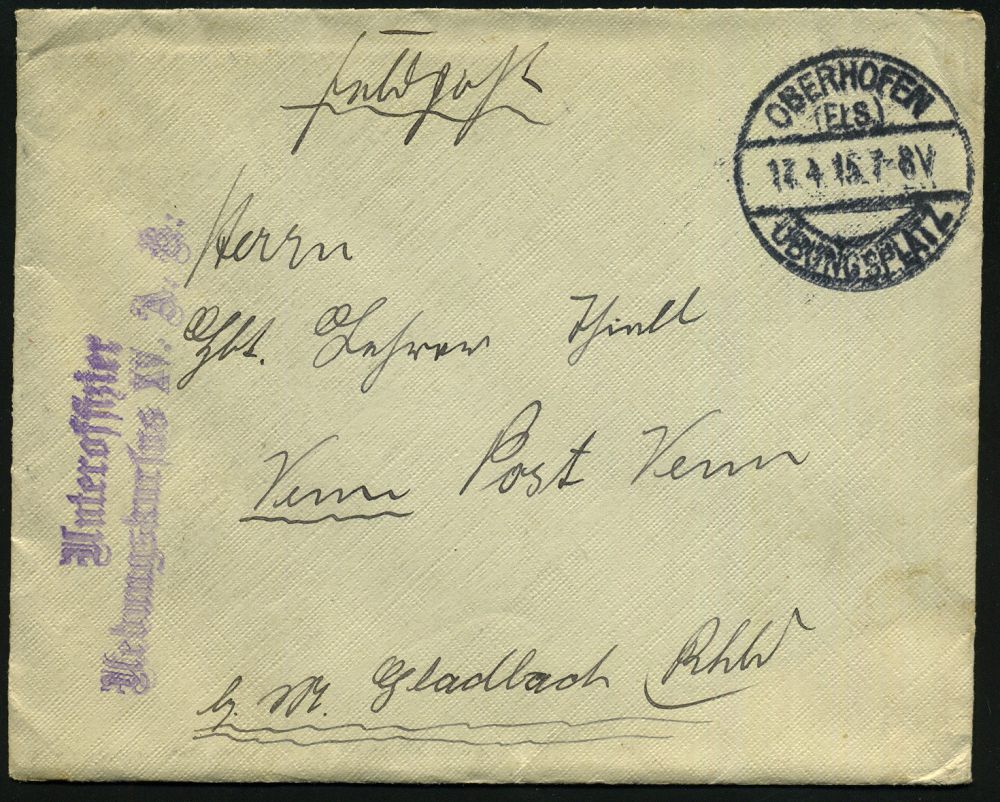 Feldpost
OBERHOFEN
(Els.)
17.4.15.7-8V
ÜBUNGSPLATZ
Herrn
Lehrer
Venn Post Venn
b. M. Gladbach Rhld
Unteroffizier
Uebungskursus XV. A. K.